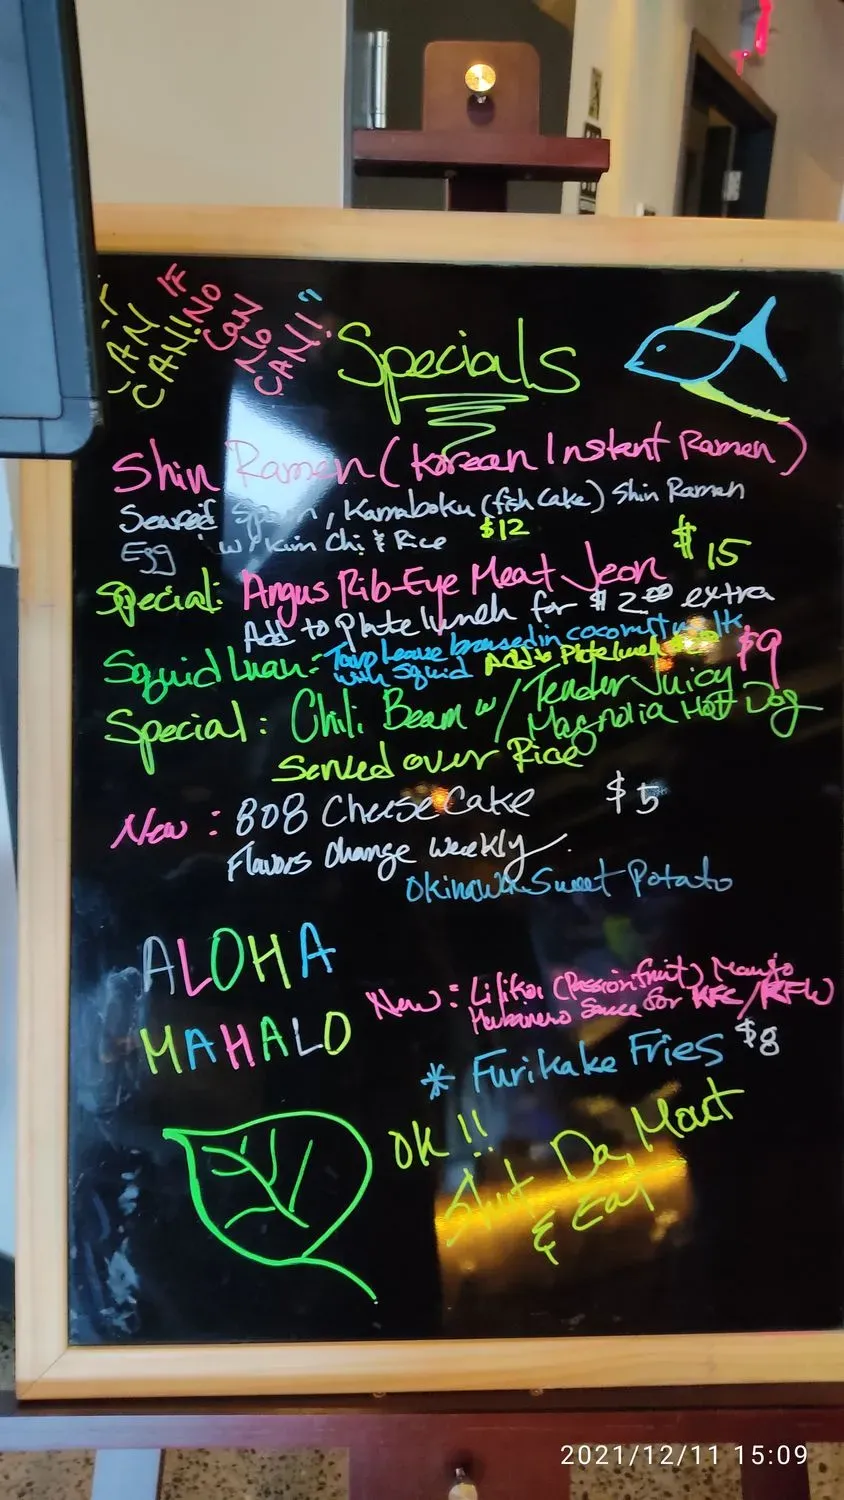 "IF CAN CAN! IF NO CAN NO CAN!"
Specials
Shin Ramen (Korean Instant Ramen)
Seared Spam, Kamaboku (fish cake) Shin Ramen
Egg w/ Kim Chi & Rice $12
Special: Angus Rib-Eye Meat Jeon $15
Add to plate lunch for $2.00 extra
Squid Luau: Taro Leave braised in coconut milk
with Squid Add to Plate lunch $9
Special: Chili Beam w/ Tender Juicy
Magnolia Hot Dog
Served over Rice
New: 808 Cheese Cake $5
Flavors Change Weekly.
Okinawan Sweet Potato
ALOHA
MAHALO
New: Lilikoi (Passionfruit) Mango
Habanero Sauce for KFC/KFW
* Furikake Fries $8
OK!!
Shut Da Mout
& Eat
2021/12/11 15:09